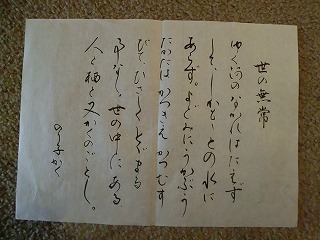 世の無常
ゆく河のながれはたえず
して、しかもゝとの水に
あらず。よどみにうかぶう
たかたはかつきえかつむす
びて、ひさしくとゞまる
事なし。世の中にある
人と栖と又かくのごとし。